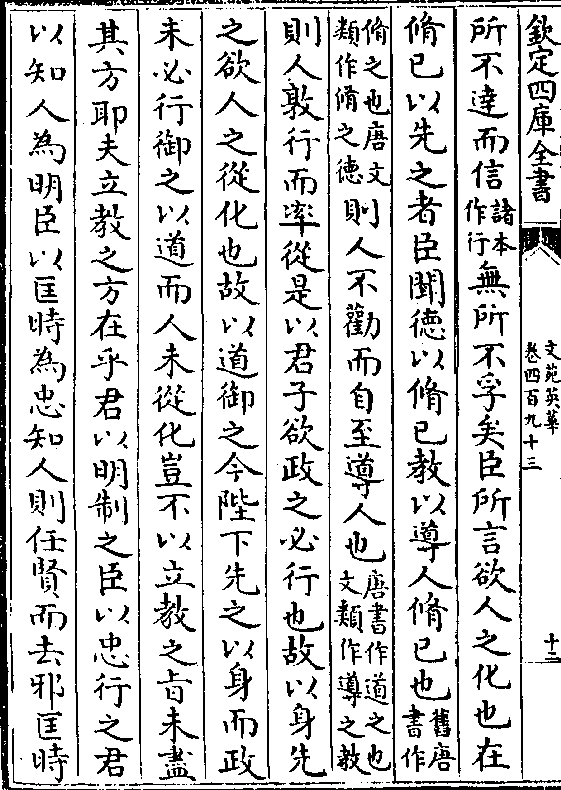 欽定四庫全書
文苑英華
卷四百九十三
十三
所不達而信諸本作行無所不孚矣臣所言欲人之化也在
脩已以先之者臣聞德以脩已教以導人脩已也舊唐書作
脩之也唐文類作脩之德則人不勸而自至導人也唐書作道之也文類作導之教
則人敦行而率從是以君子欲政之必行也故以身先
之欲人之從化也故以道御之今陛下先之以身而政
未必行御之以道而人未從化豈不以立教之旨未盡
其方耶夫立教之方在乎君以明制之臣以忠行之君
以知人為明臣以匡時為忠知人則任賢而去邪匡時